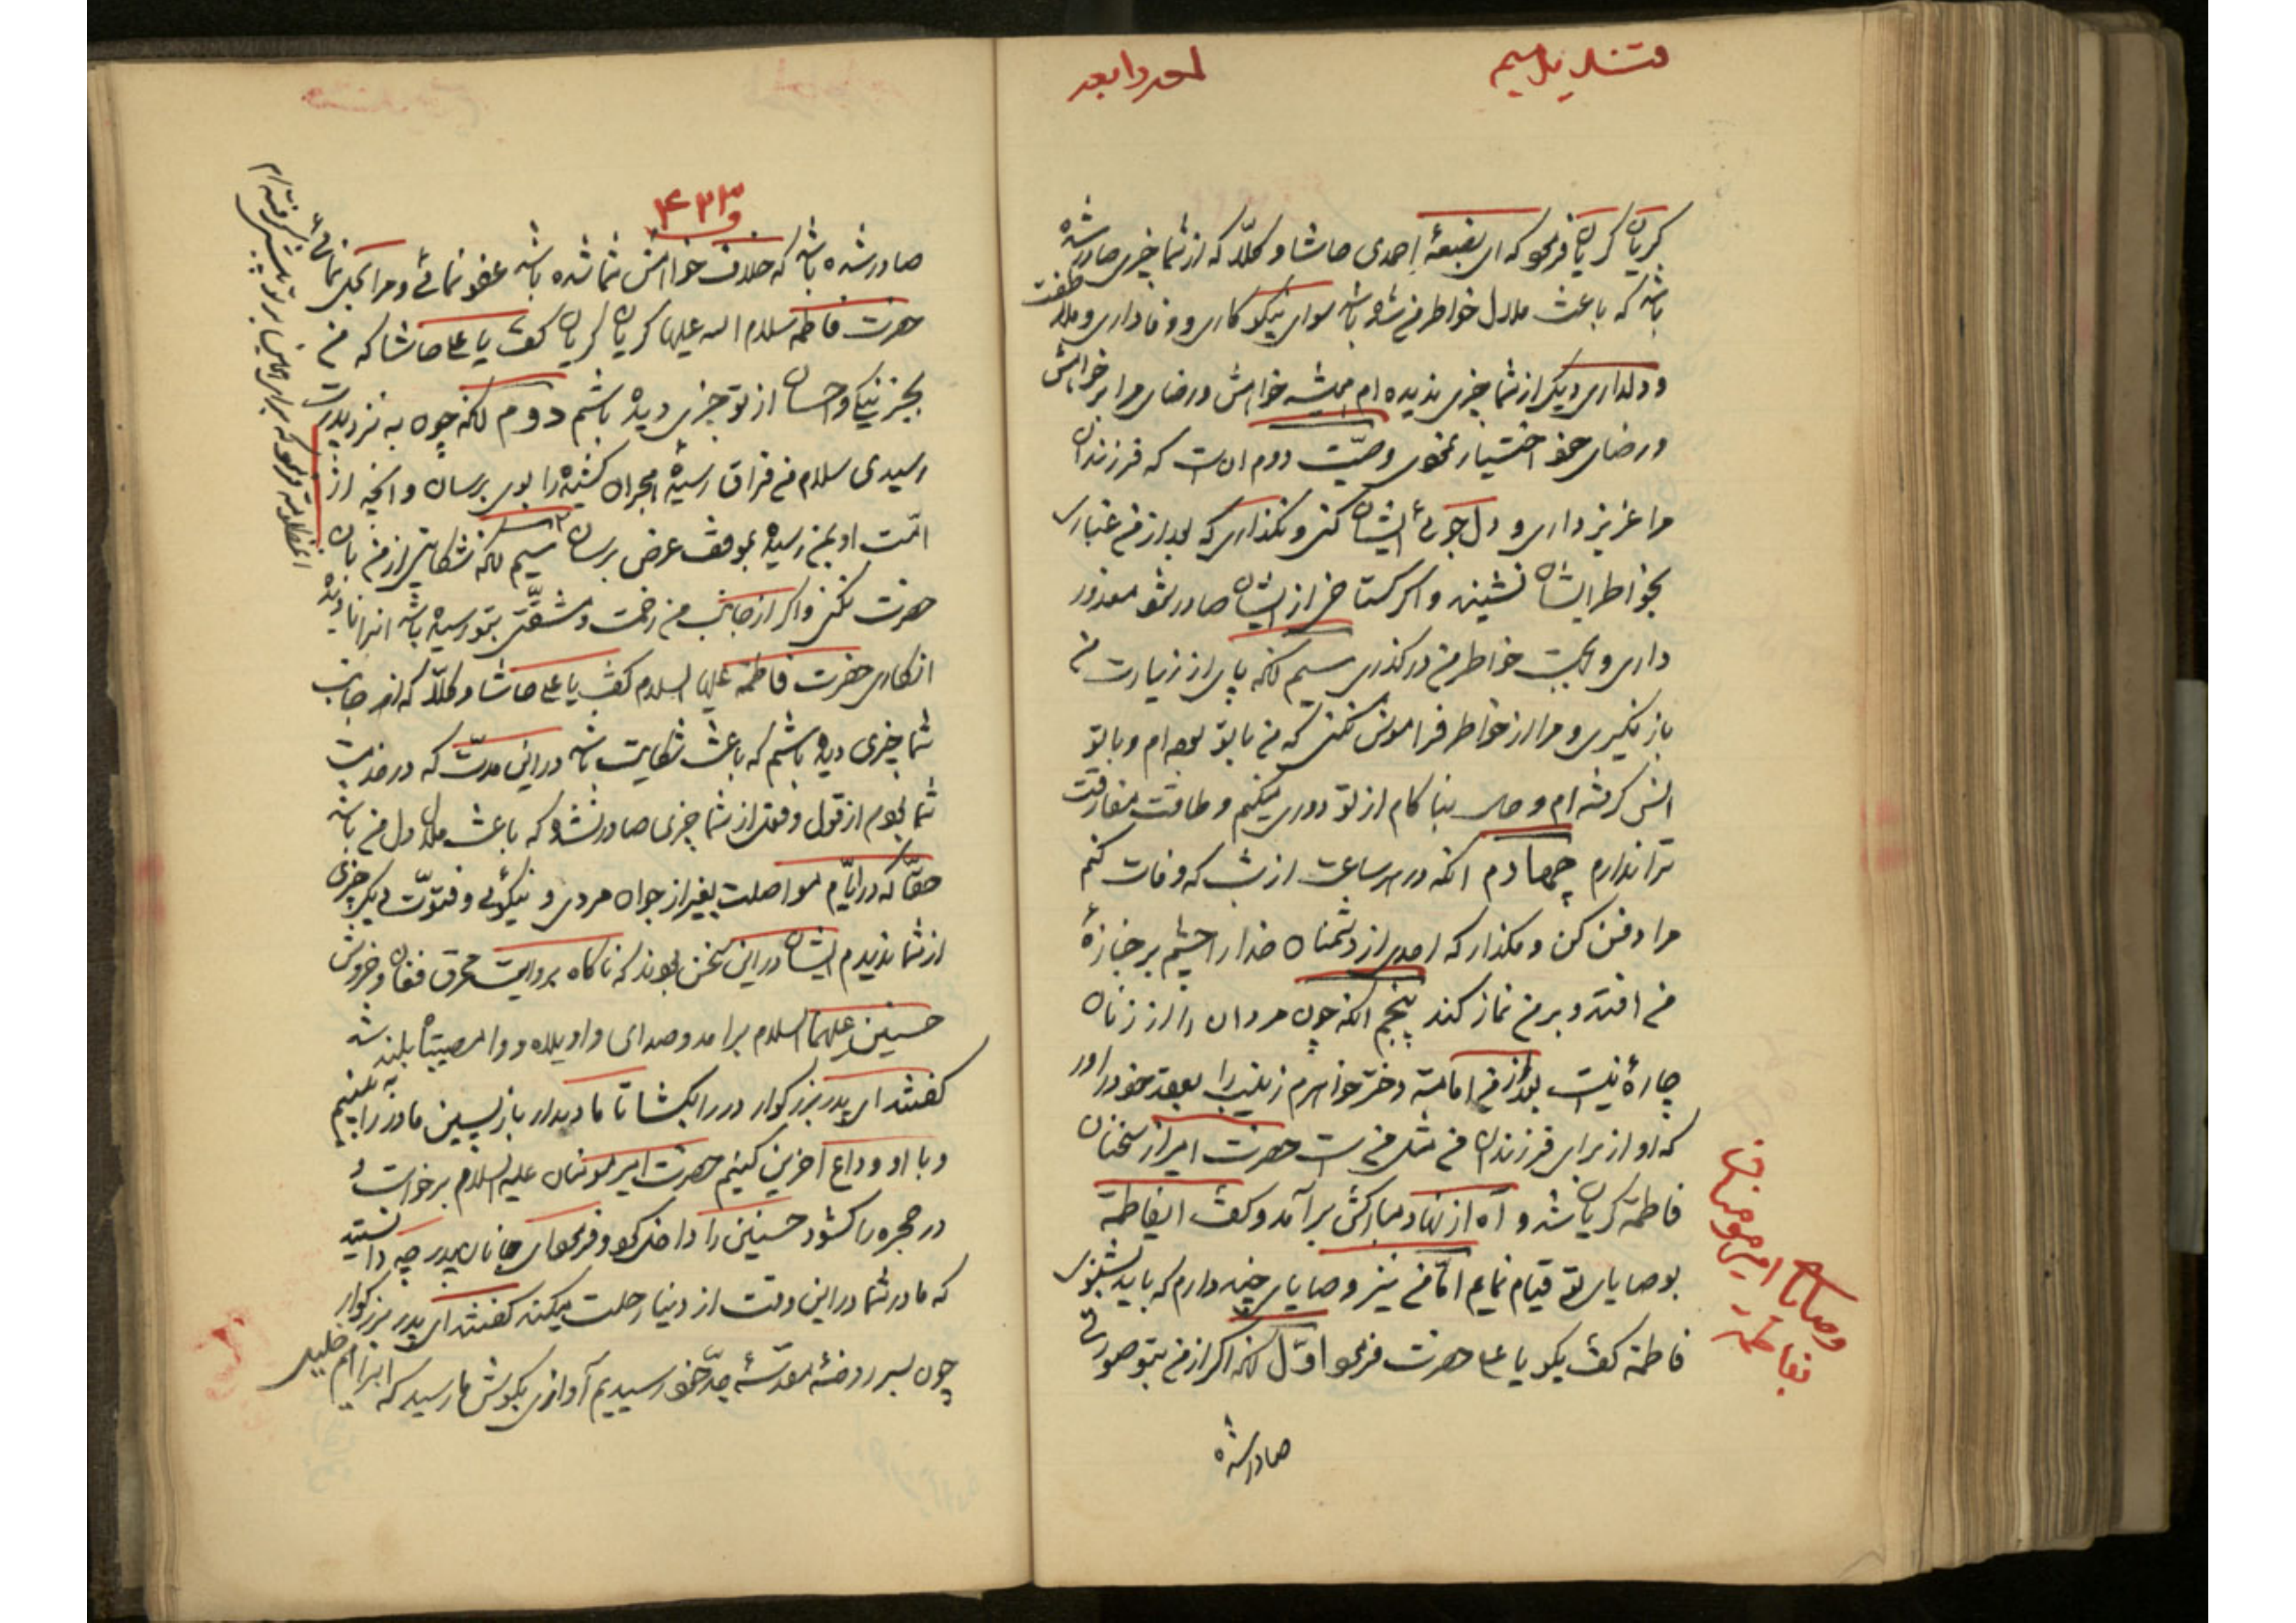 قندیل سیم
گریان گریان فرمود که ای بضعهٔ احمدی حاشا و کلّا که از شما چیزی صادر شده
باشد که باعث ملال خواطر من شده باشد سوای نیکو کاری و وفاداری و ملاطفت
و دلداری دیگر از شما چیزی ندیده ام همیشه خواهش و رضای مرا بر خواهش
و رضای خود اختیار نمودی وصیّت دوم آن است که فرزندان
مرا عزیز داری و دل جوئی ایشان کنی و نگذاری که بعد از من غباری
بخواطر ایشان نشیند و اگر گستاخی از ایشان صادر شود معذور
داری و بجهت خواطر من درگذری سیم آنکه پای از زیارت من
باز نگیری و مرا از خواطر فراموش نکنی که من با تو بوده ام و با تو
انس گرفته ام و حال بناکام از تو دوری میکنم و طاقت مفارقت
ترا ندارم چهارم آنکه در هر ساعت از شب که وفات کنم
مرا دفن کن و مگذار که احدی از دشمنان خدا را چشم بر جنازهٔ
من افتد و بر من نماز کند پنجم آنکه چون مردان را از زنان
چارهٔ نیست بعد از من امامة دختر خواهرم زینب را بعقد خود در اور
که او از برای فرزندان من مثل من است حضرت امیر از سخنان
فاطمة گریان شد و آه از نهاد مبارکش برآمد و گفت ایفاطمة
بوصایای تو قیام نمایم امّا من نیز وصایای چند دارم که باید بشنوی
فاطمة گفت بگو یا علی حضرت فرمود اوّل آنکه اگر از من بتو صورتی
صادر شده
وصایای امیرمومنان
بفاطمة
۴۳۳
صادر شده باشد که خلاف خواهش شما شده باشد عفو نمائی و مرا بحل نمائی
حضرت فاطمه سلام الله علیها گریان گریان گفت یا علی حاشا که من
بجز نیکی و احسان از تو چیزی دیده باشم دوم آنکه چون به نزد پدرت
رسیدی سلام من فراق رسیدهٔ هجران کشیده را بوی برسان و آنچه از
امّت او بمن رسیده بموقف عرض برسان سیم آنکه شکایتی از من بان
حضرت نکنی و اگر از جانب من زحمت و مشقّتی بتو رسیده باشد انرا نادیده
انگاری حضرت فاطمه علیها السلام گفت یا علی حاشا و کلّا که از جانب
شما چیزی دیده باشم که باعث شکایت باشد در این مدّت که در خدمت
شما بودم از قول و فعل از شما چیزی صادر نشد که باعث ملال دل من باشد
حقّا که در ایّام مواصلت بغیر از جوان مردی و نیکوئی و فتوّت دیگر چیزی
از شما ندیدم ایشان در این سخن بودند که ناگاه بروایت محرق فغان و خروش
حسنین علیهما السلام برامد و صدای واویلاه و وامصیبتاه بلند شد
گفتند ای پدر بزرگوار در را بگشا تا ما دیدار بازپسین مادر را به بینیم
و با او وداع آخرین کنیم حضرت امیر مومنان علیه السلام برخواست و
در حجره را گشود حسنین را داخل کرد و فرمود ای جانان پدر چه دانستید
که مادر شما در این وقت از دنیا رحلت میکند گفتند ای پدر بزرگوار
چون بسر روضهٔ مقدّسهٔ جدّ خود رسیدیم آوازی بگوش ما رسید که ابراهیم خلیل